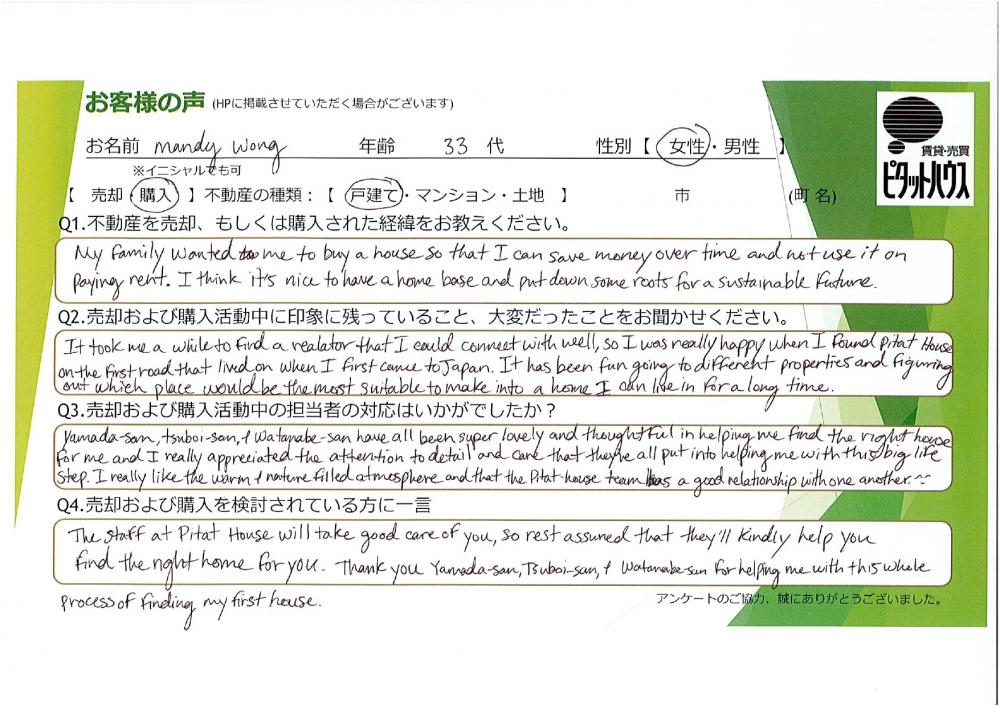 お客様の声 (HPに掲載させていただく場合がございます)
お名前 mandy Wong 年齢 33 代 性別【 女性・男性 】
※イニシャルでも可
賃貸・売買
ピタットハウス
【 売却・購入 】不動産の種類：【 戸建て・マンション・土地 】 市 (町名)
Q1.不動産を売却、もしくは購入された経緯をお教えください。
My family wanted me to buy a house so that I can save money over time and not use it on
paying rent. I think it's nice to have a home base and put down some roots for a sustainable future.
Q2.売却および購入活動中に印象に残っていること、大変だったことをお聞かせください。
It took me a while to find a realator that I could connect with well, so I was really happy when I found Pitat House
on the first road that lived on when I first came to Japan. It has been fun going to different properties and figuring
out which place would be the most suitable to make into a home I can live in for a long time.
Q3.売却および購入活動中の担当者の対応はいかがでしたか？
Yamada-san, Tsuboi-san, & Watanabe-san have all been super lovely and thoughtful in helping me find the right house
for me and I really appreciated the attention to detail and care that they've all put into helping me with this big life
step. I really like the warm & nature filled atmosphere and that the Pitat-house team has a good relationship with one another. ^^
Q4.売却および購入を検討されている方に一言
The staff at Pitat House will take good care of you, so rest assured that they'll kindly help you
find the right home for you. Thank you Yamada-san, Tsuboi-san, & Watanabe-san for helping me with this whole
process of finding my first house.
アンケートのご協力、誠にありがとうございました。